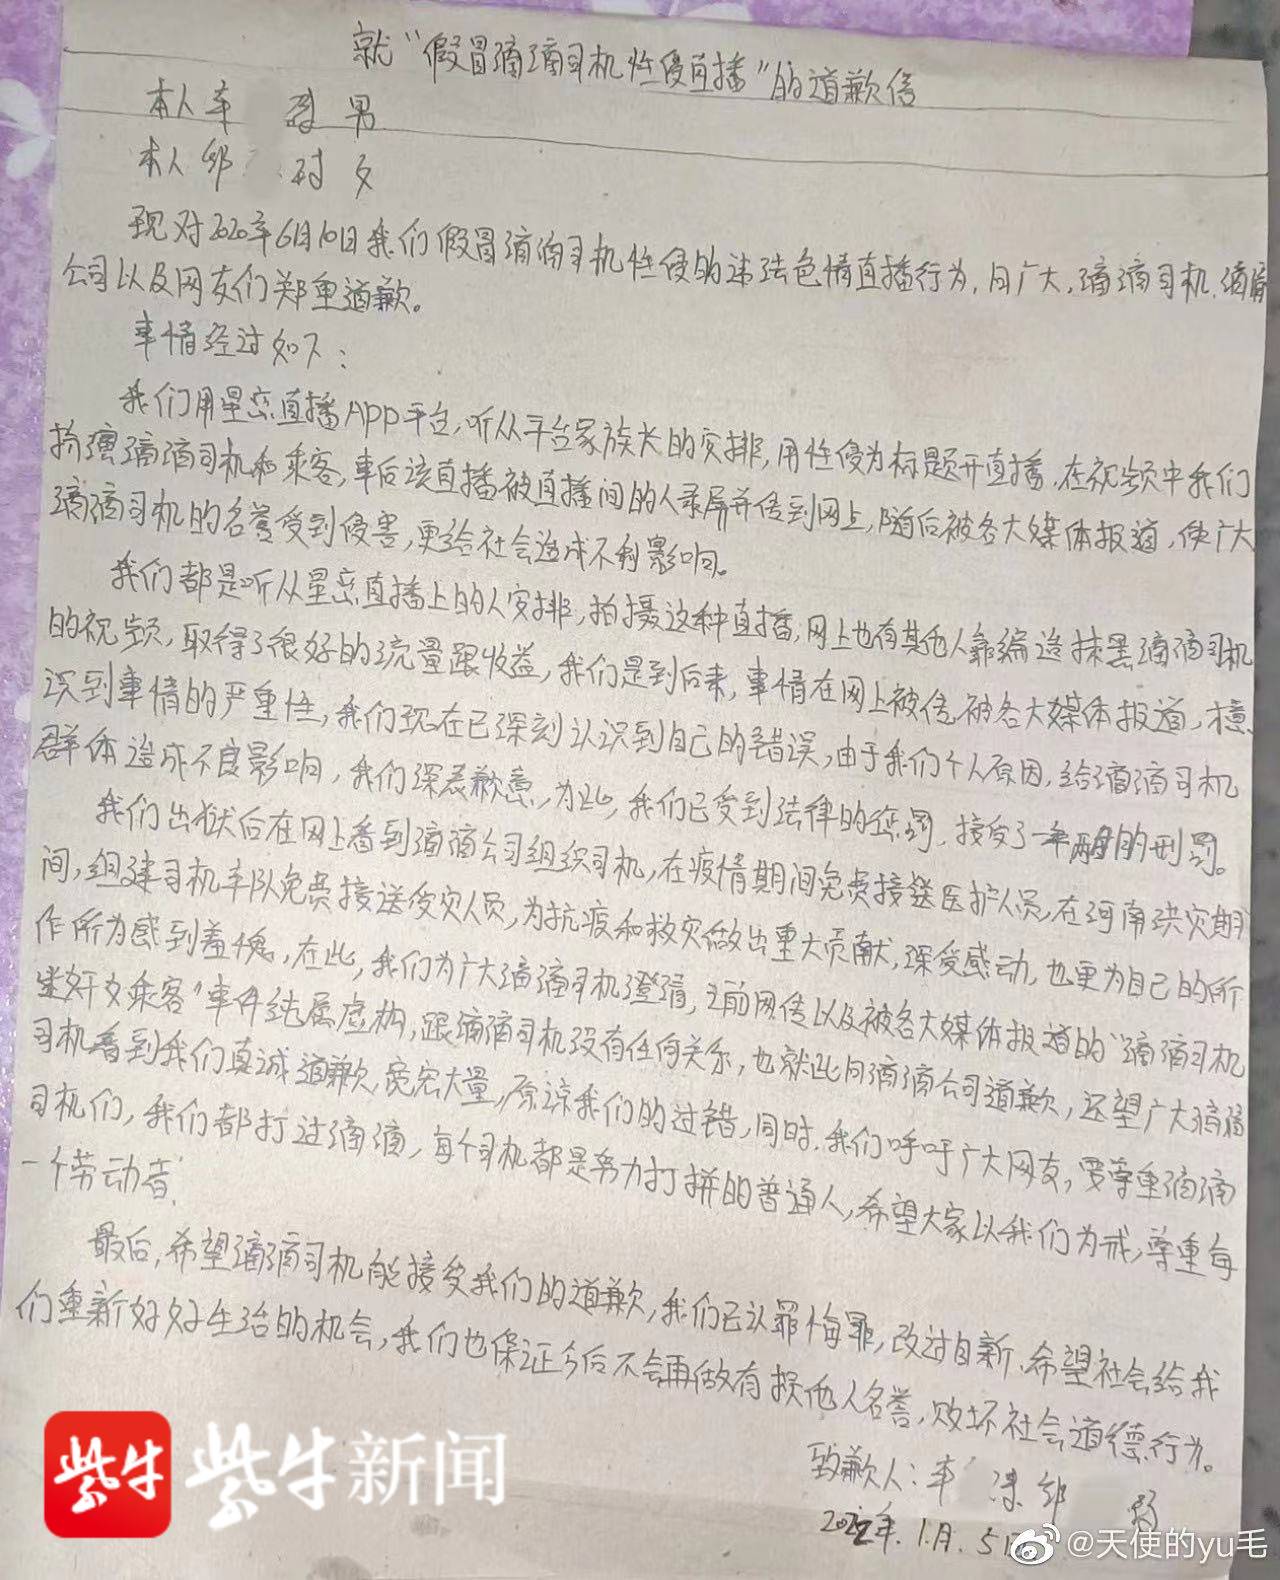 就“假冒滴滴司机性侵直播”的道歉信
本人车 男
本人邹 女
现对2020年6月10日我们假冒滴滴司机性侵的违法色情直播行为，向广大，滴滴司机，滴滴
公司以及网友们郑重道歉。
事情经过如下：
我们用星恋直播APP平台，听从平台家族长的安排，用性侵为标题开直播，在视频中我们
扮演滴滴司机和乘客，事后该直播被直播间的人录屏并传到网上，随后被各大媒体报道，使广大
滴滴司机的名誉受到侵害，更给社会造成不利影响。
我们都是听从星恋直播上的人安排，拍摄这种直播，网上也有其他人靠编造抹黑滴滴司机
的视频，取得了很好的流量跟收益，我们是到后来，事情在网上被传被各大媒体报道，才意
识到事情的严重性，我们现在已深刻认识到自己的错误，由于我们个人原因，给滴滴司机
群体造成不良影响，我们深表歉意，为此，我们已受到法律的惩罚，接受了一年两月的刑罚。
我们出狱后在网上看到滴滴公司组织司机，在疫情期间免费接送医护人员，在河南洪灾期
间，组建司机车队免费接送受灾人员，为抗疫和救灾做出重大贡献，深受感动，也更为自己的所
作所为感到羞愧，在此，我们为广大滴滴司机澄清，之前网传以及被各大媒体报道的“滴滴司机
迷奸女乘客”事件纯属虚构，跟滴滴司机没有任何关系，也就此向滴滴公司道歉，还望广大滴滴
司机看到我们真诚道歉，宽宏大量，原谅我们的过错，同时，我们呼吁广大网友，要尊重滴滴
司机们，我们都打过滴滴，每个司机都是努力打拼的普通人，希望大家以我们为戒，尊重每
一个劳动者，
最后，希望滴滴司机能接受我们的道歉，我们已认罪悔罪，改过自新，希望社会给我
们重新好好生活的机会，我们也保证今后不会再做有损他人名誉，败坏社会道德行为。
致歉人：车 邹
2022年.1月.5日
紫牛 紫牛新闻
@天使的yu毛